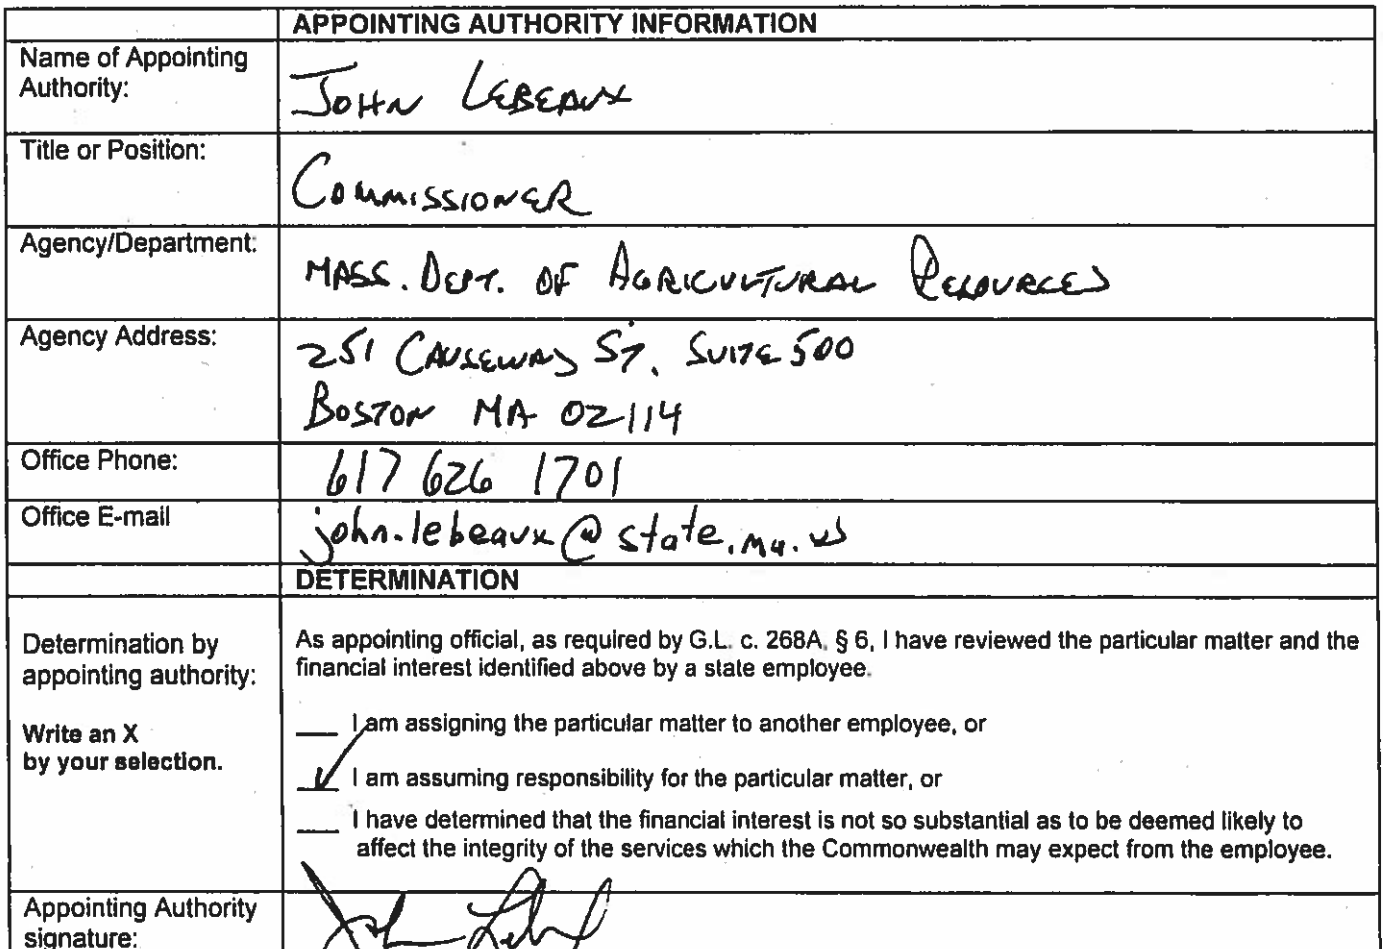 APPOINTING AUTHORITY INFORMATION
Name of Appointing
Authority:
JOHN LEBEAUX
Title or Position:
COMMISSIONER
Agency/Department:
MASS. DEPT. OF AGRICULTURAL RESOURCES
Agency Address:
251 CAUSEWAY ST. SUITE 500
BOSTON MA 02114
Office Phone:
617 626 1701
Office E-mail
john.lebeaux@state.ma.us
DETERMINATION
Determination by
appointing authority:
Write an X
by your selection.
As appointing official, as required by G.L. c. 268A, § 6, I have reviewed the particular matter and the
financial interest identified above by a state employee.
___ I am assigning the particular matter to another employee, or
✓ I am assuming responsibility for the particular matter, or
___ I have determined that the financial interest is not so substantial as to be deemed likely to
affect the integrity of the services which the Commonwealth may expect from the employee.
Appointing Authority
signature: